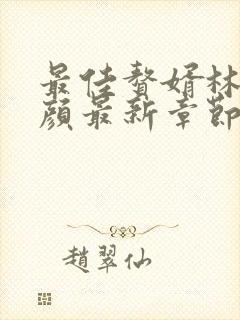 最佳贅婿林
顏最新章節
趙翠仙